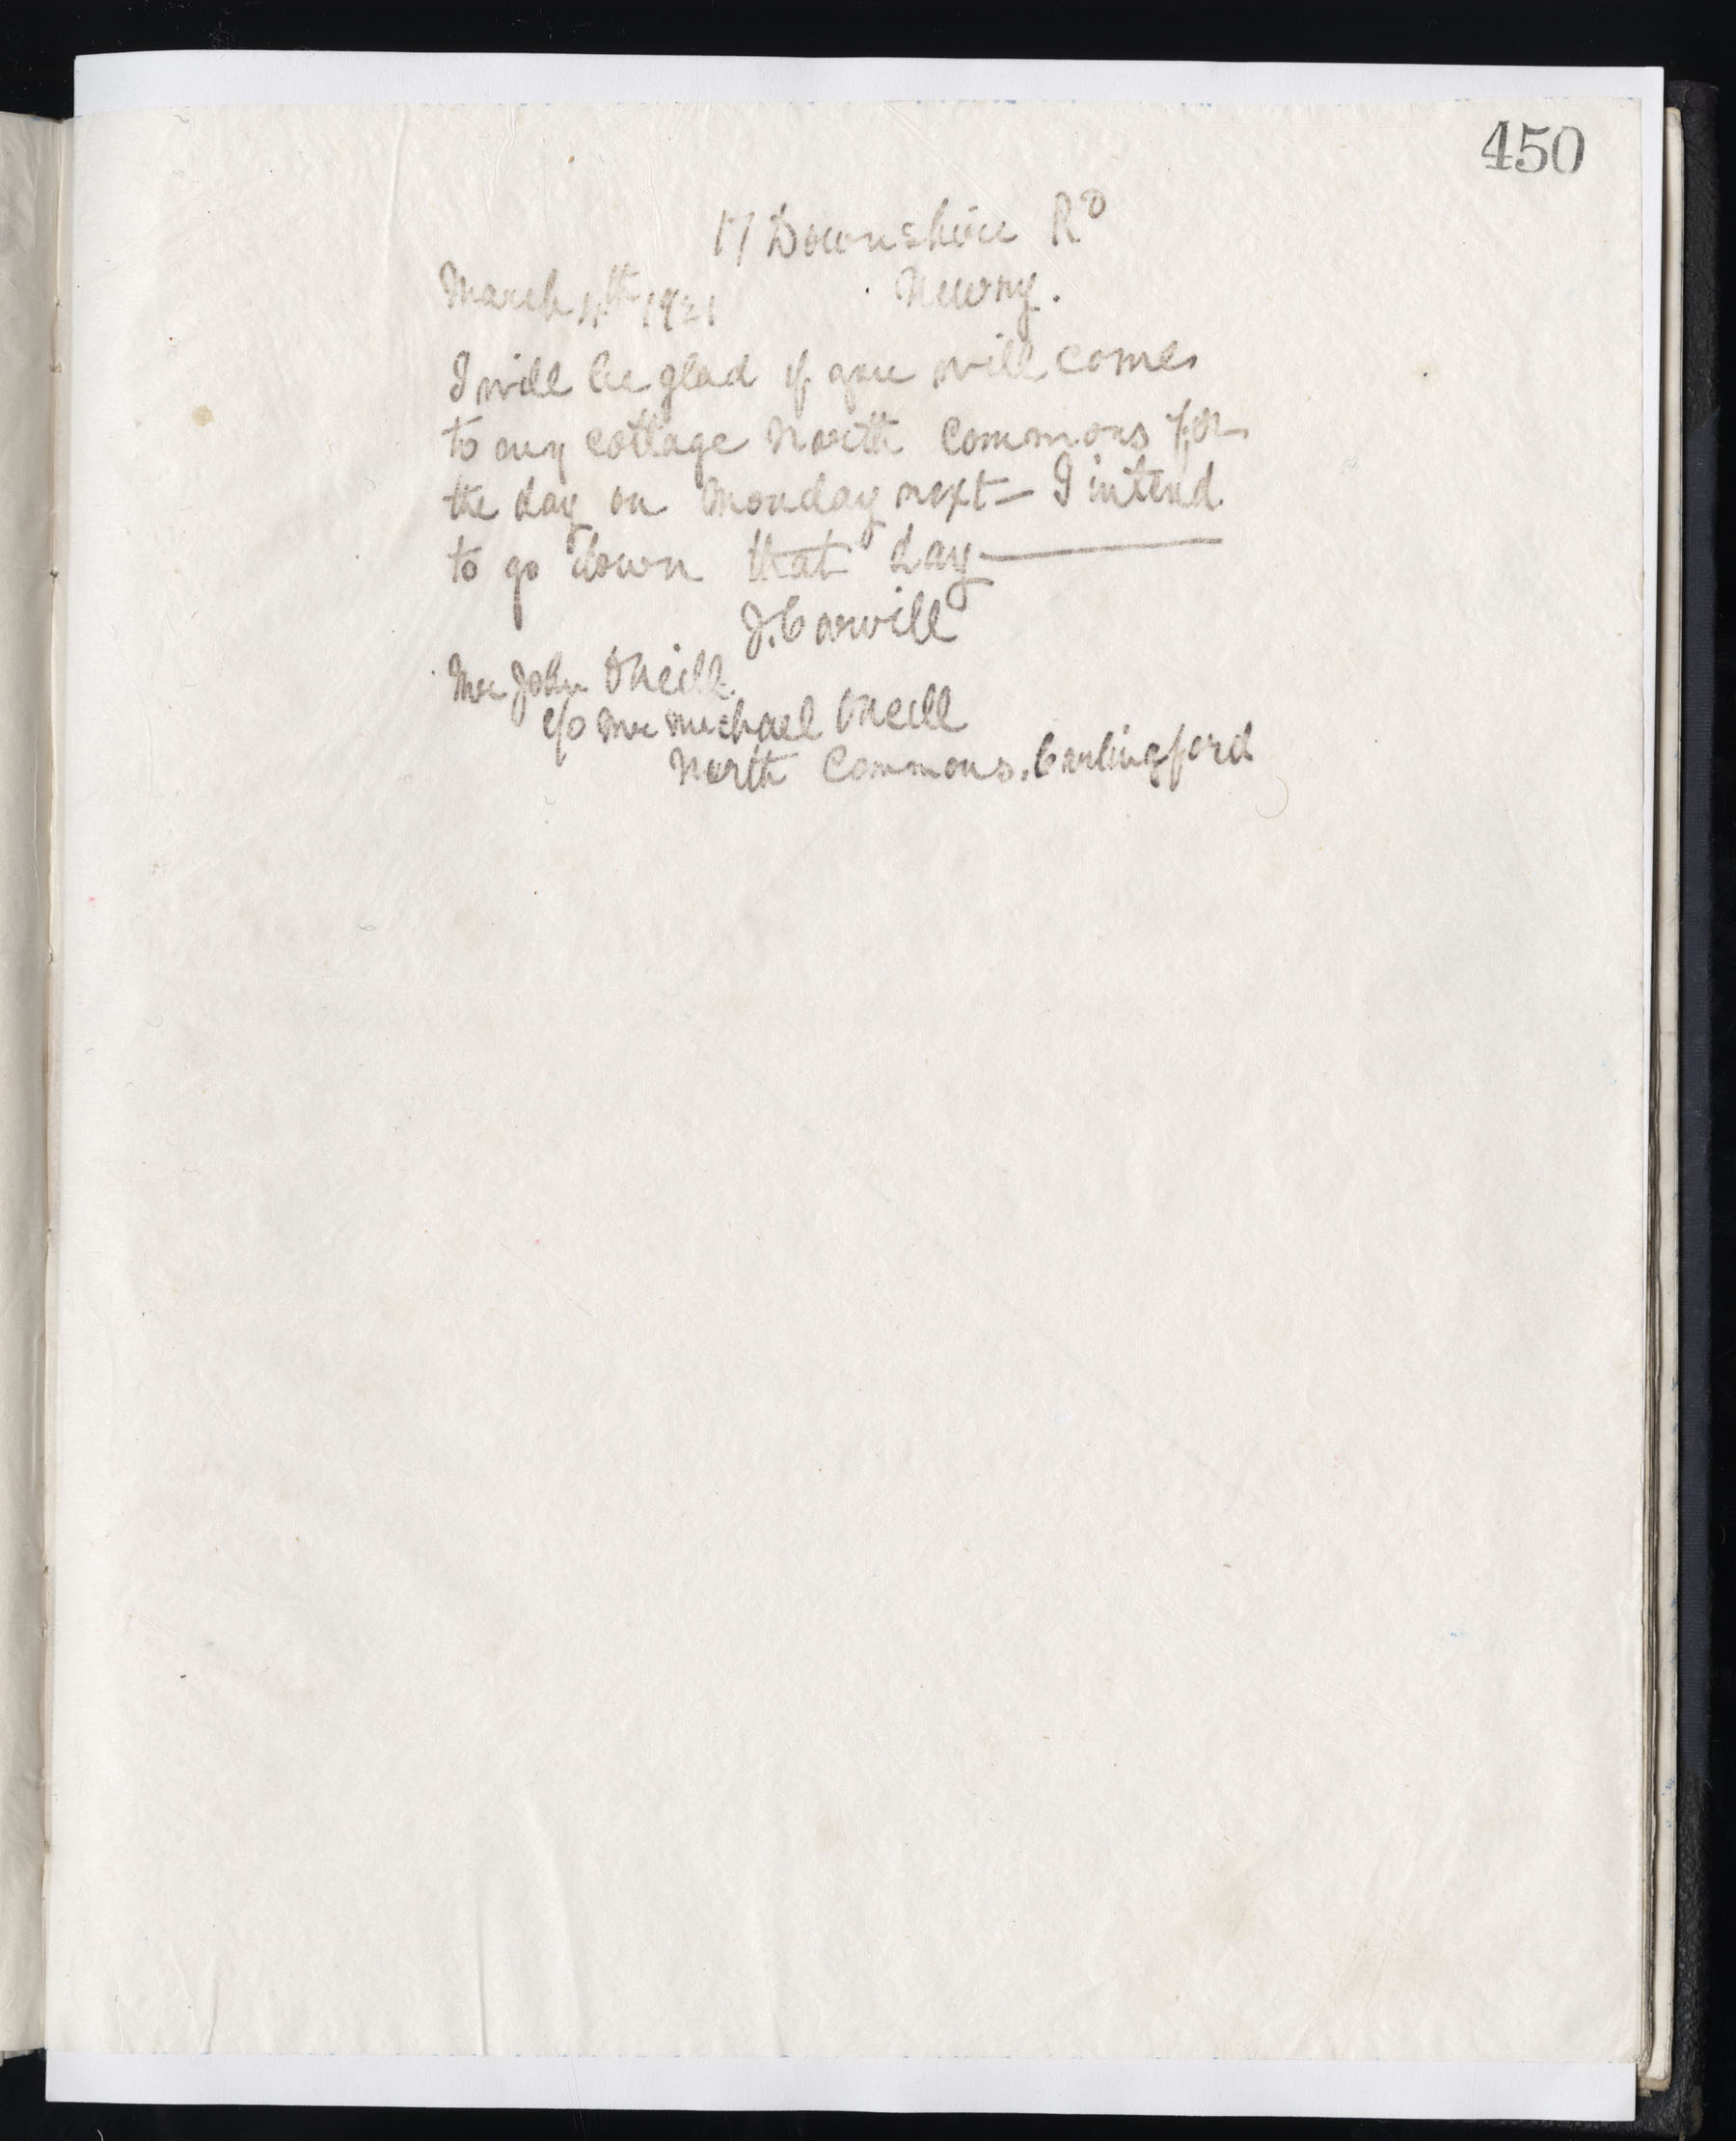 450
17 Downshire Rd
March 4th 1921 Newry.
I will be glad if you will come
to my cottage North Commons for
the day on Monday next — I intend
to go down that day —
J. Carvill
Mr John ONeill.
c/o Mr Michael ONeill
North Commons. Carlingford